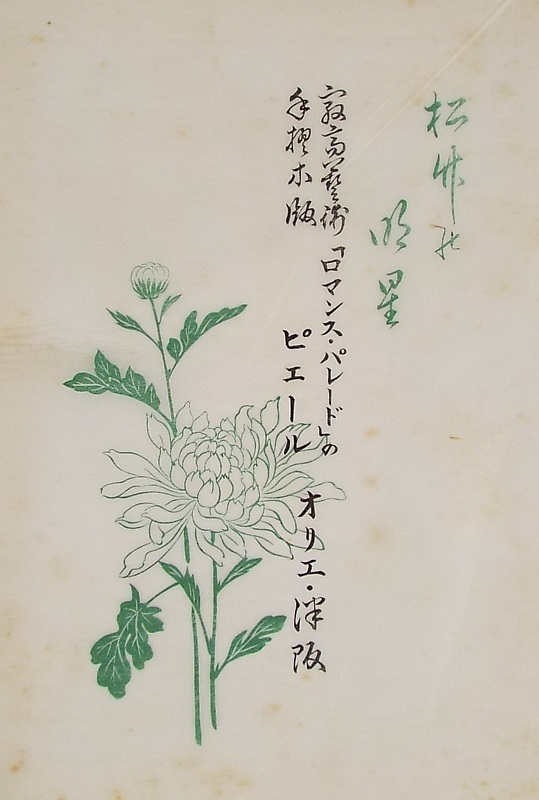 松竹の
明星
最高藝術「ロマンス・パレード」の
手摺木版
ピエール
オリエ・津阪